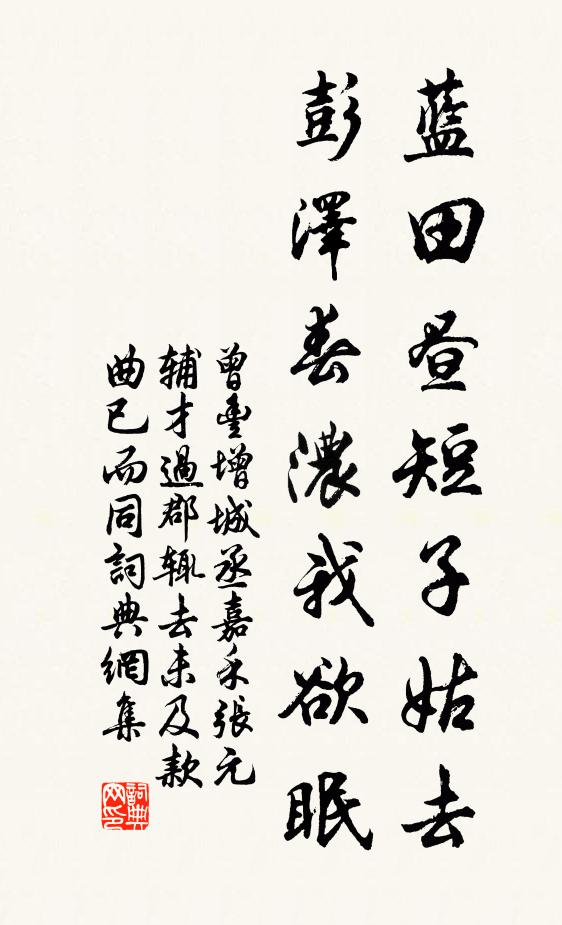 藍田昼短子姑去
彭澤春濃我欲眠
曾豐增城丞嘉禾張元
辅才過郡辄去未及款
曲已而同詞典網集
詞典网印